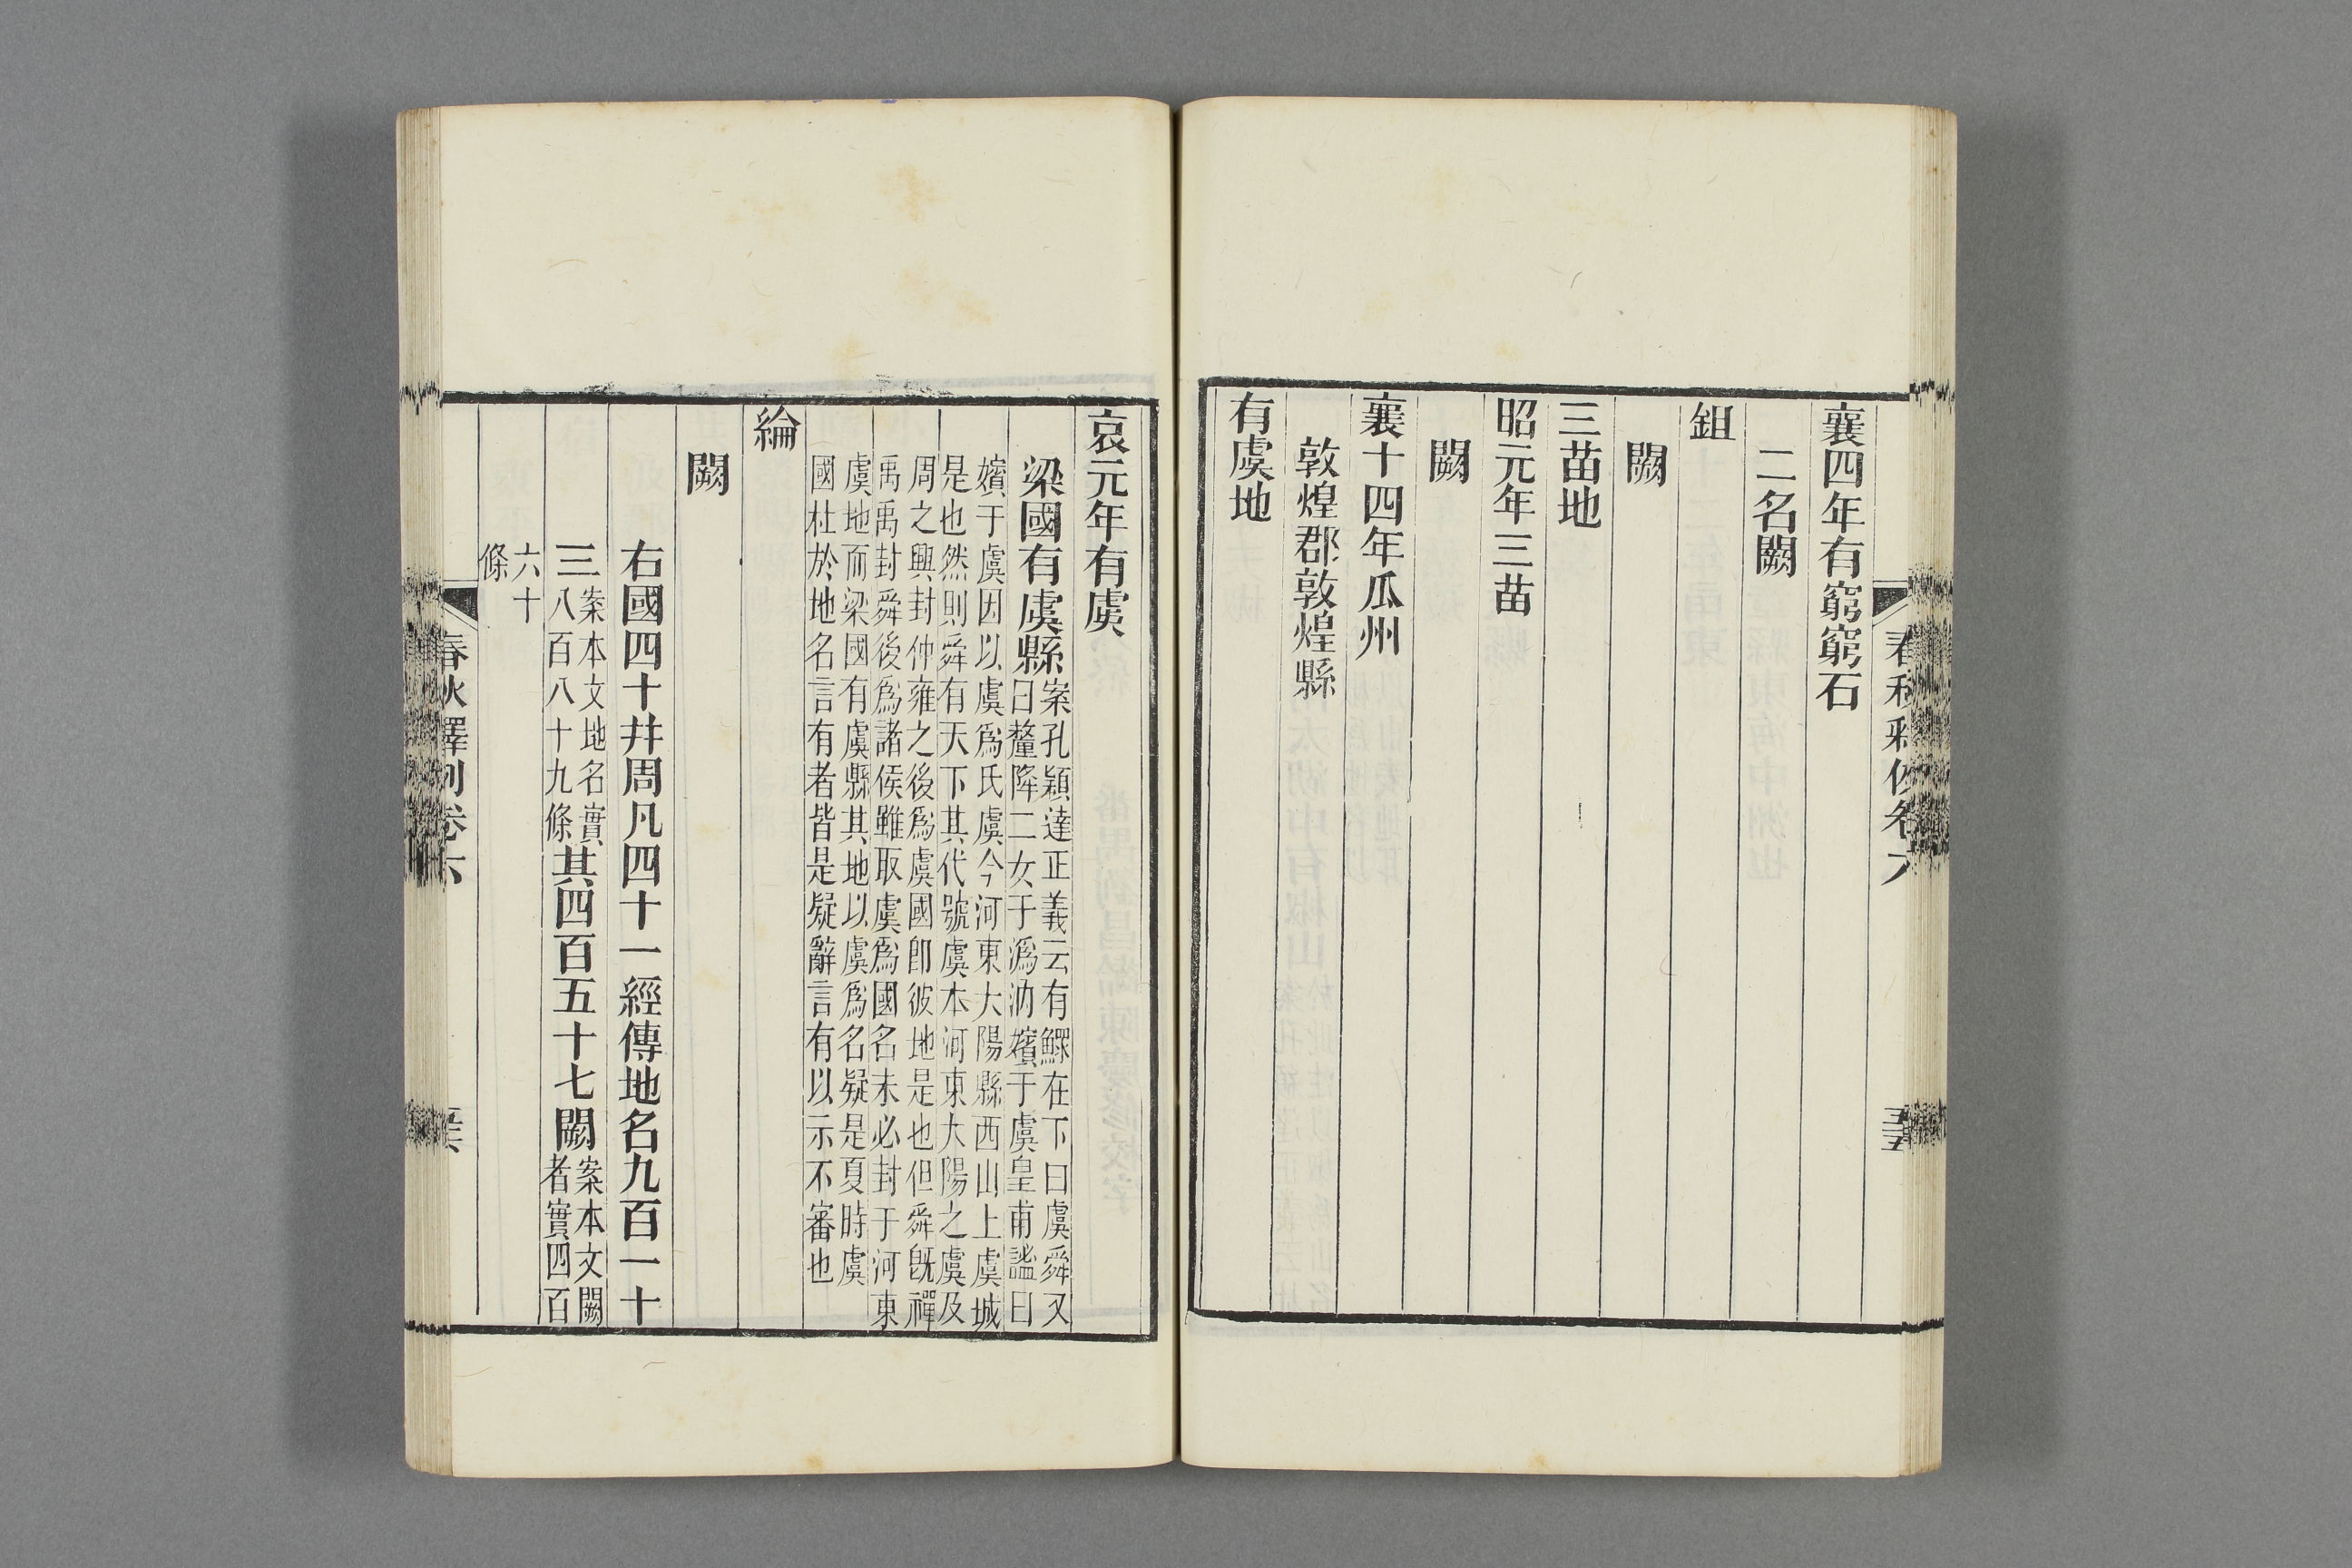 襄四年有窮窮石
二名闕
鉏
闕
三苗地
昭元年三苗
闕
襄十四年瓜州
敦煌郡敦煌縣
有虞地
哀元年有虞
梁國有虞縣案孔穎達正義云有鰥在下曰虞舜又
曰釐降二女于潙汭嬪于虞皇甫謐曰
嬪于虞因以虞爲氏虞今河東大陽縣西山上虞城
是也然則舜有天下其代號虞本河東大陽之虞及
周之興封仲雍之後爲虞國卽彼地是也但舜旣禪
禹禹封舜後爲諸侯雖取虞爲國名未必封于河東
虞地而梁國有虞縣其地以虞爲名疑是夏時虞
國杜於地名言有者皆是疑辭言有以示不審也
綸
闕
右國四十幷周凡四十一經傳地名九百一十
三案本文地名實八百八十九條其四百五十七闕案本文闕者實四百
六十
條
春秋釋例卷六